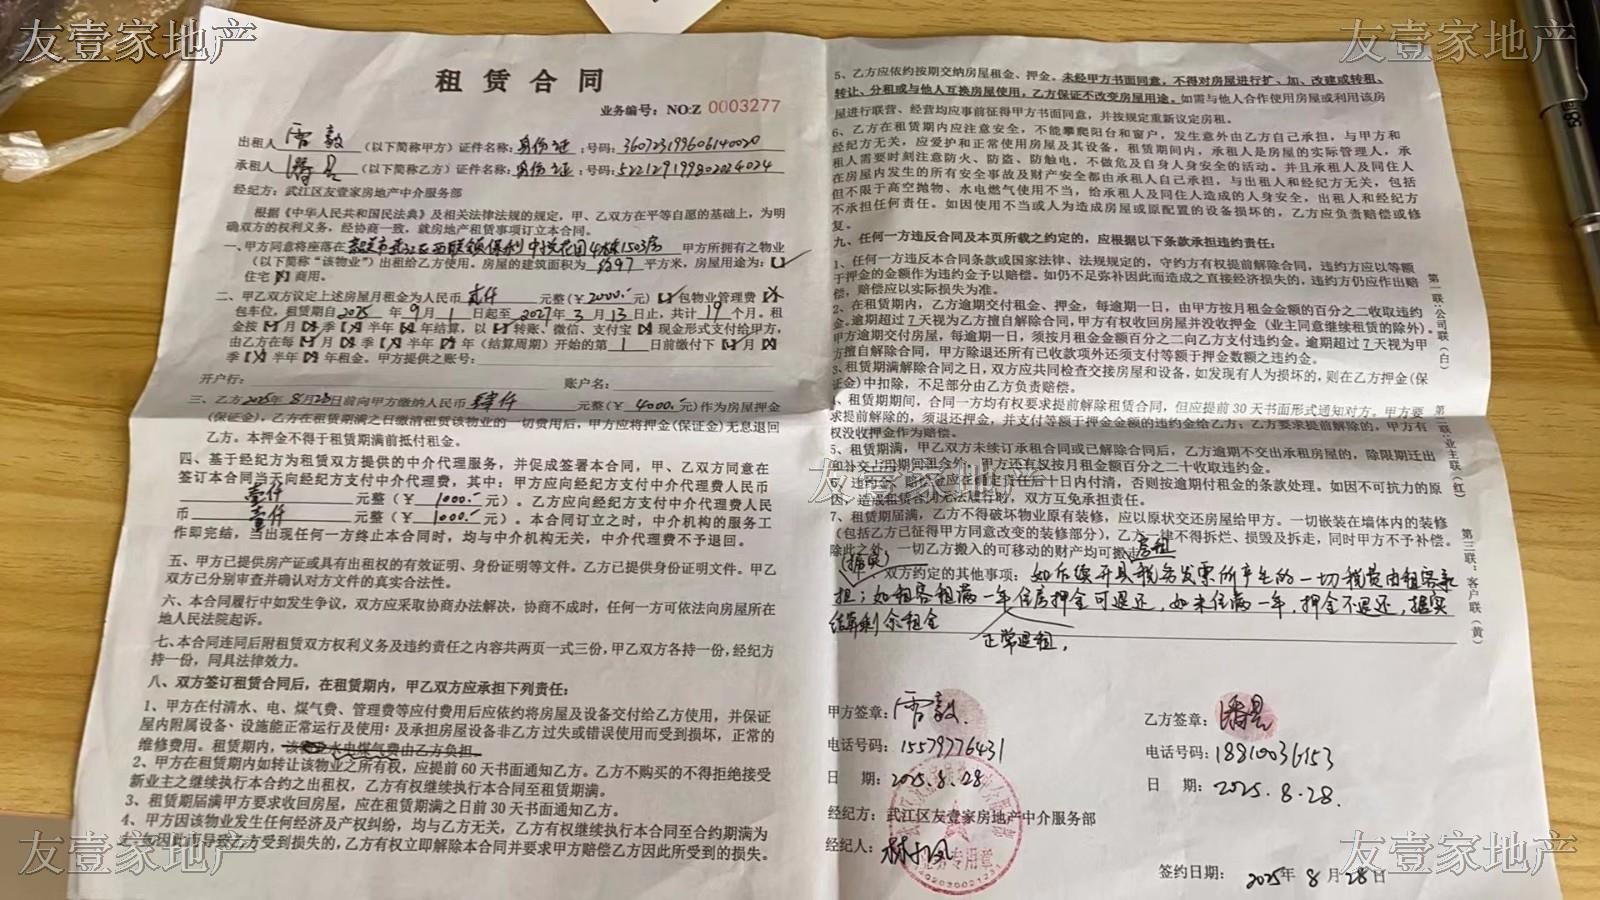 友壹家地产
友壹家地产
租赁合同
业务编号：NO:Z 0003277
出租人 雷毅 （以下简称甲方）证件名称：身份证 ；号码：360723199606140020
承租人 潘昱 （以下简称乙方）证件名称：身份证 ；号码：522129199802024024
经纪方：武江区友壹家房地产中介服务部
根据《中华人民共和国民法典》及相关法律法规的规定，甲、乙双方在平等自愿的基础上，为明
确双方的权利义务，经协商一致，就房地产租赁事项订立本合同。
一、甲方同意将座落在韶关市武江区西联镇保利中悦花园4栋1503房 甲方所拥有之物业
（以下简称“该物业”）出租给乙方使用。房屋的建筑面积为 约97 平方米，房屋用途为：【 】
住宅【 】商用。
二、甲乙双方议定上述房屋月租金为人民币 贰仟 元整（￥2000.-元）【 】包物业管理费【 】
包车位，租赁期自2025 年 9 月 1 日起至 2027 年 3 月 13 日止，共计 19 个月。租
金按【 】月【 】季【 】半年【 】年结算，以【 】转账、微信、支付宝【 】现金形式支付给甲方，
由乙方在每【 】月【 】季【 】半年【 】年（结算周期）开始的第 1 日前缴付下【 】月【 】
季【 】半年【 】年租金。甲方提供之账号：
开户行： 账户名：
三、乙方2025年 8月28日前向甲方缴纳人民币 肆仟 元整（￥ 4000.-元）作为房屋押金
（保证金），乙方在租赁期满之日缴清租赁该物业的一切费用后，甲方应将押金（保证金）无息退回
乙方。本押金不得于租赁期满前抵付租金。
四、基于经纪方为租赁双方提供的中介代理服务，并促成签署本合同，甲、乙双方同意在
签订本合同当天向经纪方支付中介代理费，其中：甲方应向经纪方支付中介代理费人民币
壹仟 元整（￥ 1000.- 元）。乙方应向经纪方支付中介代理费人民
币 壹仟 元整（￥ 1000.- 元）。本合同订立之时，中介机构的服务工
作即完结，当出现任何一方终止本合同时，均与中介机构无关，中介代理费不予退回。
五、甲方已提供房产证或具有出租权的有效证明、身份证明等文件。乙方已提供身份证明文件。甲乙
双方已分别审查并确认对方文件的真实合法性。
六、本合同履行中如发生争议，双方应采取协商办法解决，协商不成时，任何一方可依法向房屋所在
地人民法院起诉。
七、本合同连同后附租赁双方权利义务及违约责任之内容共两页一式三份，甲乙双方各持一份，经纪方
持一份，同具法律效力。
八、双方签订租赁合同后，在租赁期内，甲乙双方应承担下列责任：
1、甲方在付清水、电、煤气费、管理费等应付费用后应依约将房屋及设备交付给乙方使用，并保证
屋内附属设备、设施能正常运行及使用；及承担房屋设备非乙方过失或错误使用而受到损坏，正常的
维修费用。租赁期内，水电煤气费由乙方负担。
2、甲方在租赁期内如转让该物业之所有权，应提前60天书面通知乙方。乙方不购买的不得拒绝接受
新业主之继续执行本合约之出租权，乙方有权继续执行本合同至租赁期满。
3、租赁期届满甲方要求收回房屋，应在租赁期满之日前30天书面通知乙方。
4、甲方因该物业发生任何经济及产权纠纷，均与乙方无关，乙方有权继续执行本合同至合约期满为
如因此而导致乙方受到损失的，乙方有权立即解除本合同并要求甲方赔偿乙方因此所受到的损失。
5、乙方应依约按期交纳房屋租金、押金。未经甲方书面同意，不得对房屋进行扩、加、改建或转租、
转让、分租或与他人互换房屋使用，乙方保证不改变房屋用途。如需与他人合作使用房屋或利用该房
屋进行联营、经营均应事前征得甲方书面同意，并按规定重新议定房租。
6、乙方在租赁期内应注意安全，不能攀爬阳台和窗户，发生意外由乙方自己承担，与甲方和
经纪方无关，应爱护和正常使用房屋及其设备，租赁期间内，承租人是房屋的实际管理人，承
租人需要时刻注意防火、防盗、防触电，不做危及自身人身安全的活动。并且承租人及同住人
在房屋内发生的所有安全事故及财产安全都由承租人自己承担，与出租人和经纪方无关，包括
但不限于高空抛物、水电燃气使用不当，给承租人及同住人造成的人身安全，出租人和经纪方
不承担任何责任。如因使用不当或人为造成房屋或原配置的设备损坏的，乙方应负责赔偿或修
复。
九、任何一方违反合同及本页所载之约定的，应根据以下条款承担违约责任：
1、任何一方违反本合同条款或国家法律、法规规定的，守约方有权提前解除合同，违约方应以等额
于押金的金额作为违约金予以赔偿。如仍不足弥补因此而造成之直接经济损失的，违约方仍应作出赔
偿，赔偿应以实际损失为准。
2、在租赁期内，乙方逾期交付租金、押金，每逾期一日，由甲方按月租金金额的百分之二收取违约
金。逾期超过7天视为乙方擅自解除合同，甲方有权收回房屋并没收押金（业主同意继续租赁的除外）。
甲方逾期交付房屋，每逾期一日，须按月租金金额百分之二向乙方支付违约金。逾期超过7天视为甲
方擅自解除合同，甲方除退还所有已收款项外还须支付等额于押金数额之违约金。
3、租赁期满解除合同之日，双方应共同检查交接房屋和设备，如发现有人为损坏的，则在乙方押金（保
证金）中扣除，不足部分由乙方负责赔偿。
4、租赁期期间，合同一方均有权要求提前解除租赁合同，但应提前30天书面形式通知对方。甲方要
求提前解除的，须退还押金，并支付等额于押金金额的违约金给乙方；乙方要求提前解除的，甲方有
权没收押金作为赔偿。
5、租赁期满，甲乙双方未续订承租合同或已解除合同后，乙方逾期不交出承租房屋的，除限期迁出
和补交占用期间租金外，甲方还有权按月租金额百分之二十收取违约金。
6、违约金、赔偿金应在确定责任后十日内付清，否则按逾期付租金的条款处理。如因不可抗力的原
因，造成租赁合同无法履行时，双方互免承担责任。
7、租赁期届满，乙方不得破坏物业原有装修，应以原状交还房屋给甲方。一切嵌装在墙体内的装修
（包括乙方已征得甲方同意改变的装修部分），乙方一律不得拆烂、损毁及拆走，同时甲方不予补偿。
除此之外，一切乙方搬入的可移动的财产均可搬走。
房租
双方约定的其他事项：如后续开具税务发票所产生的一切税费由租客承
担；如租客租满一年住房押金可退还，如未住满一年，押金不退还，据实
结算剩余租金
正常退租，
第一联：公司联（白）
第二联：业主联（红）
第三联：客户联（黄）
友壹家地产
甲方签章：雷毅
电话号码：15579776431
日 期：2025.8.28
经纪方：武江区友壹家房地产中介服务部
经纪人：
乙方签章：潘昱
电话号码：18810036153
日 期：2025.8.28.
签约日期： 2025年 8 月 28 日
友壹家地产
友壹家地产